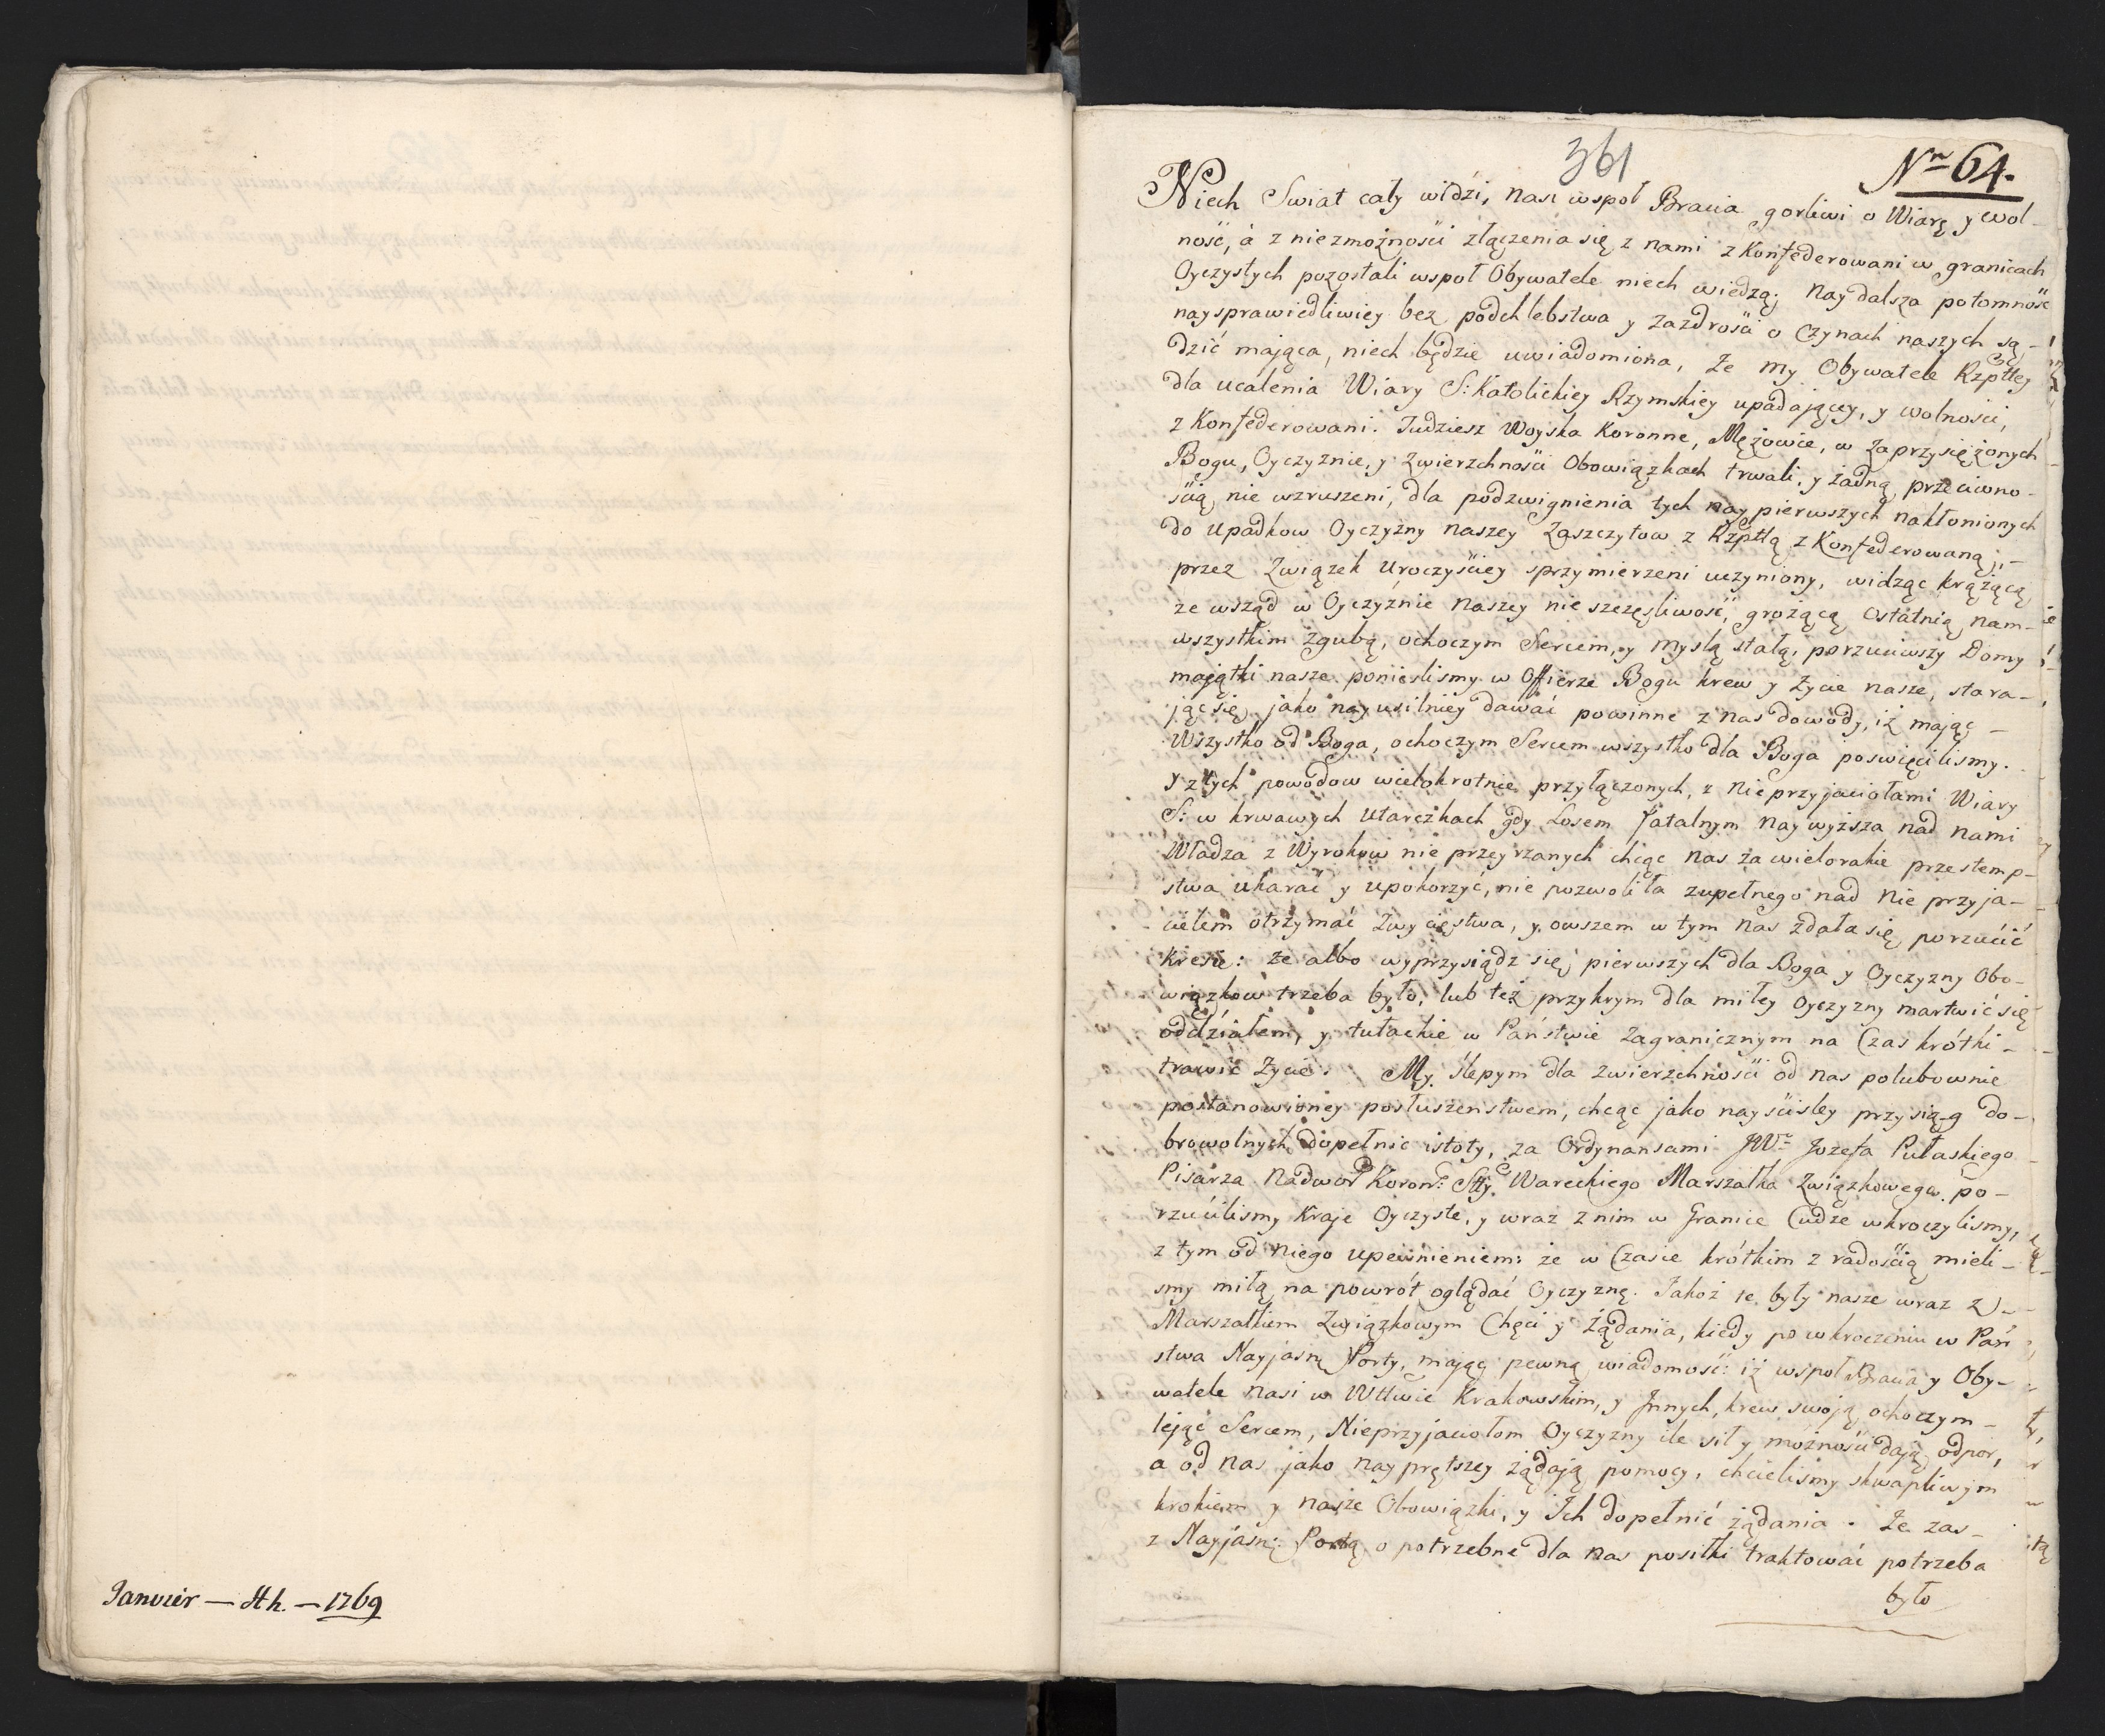 Janvier — Ath. — 1769
361
Nro 64.
Niech Swiat cały widzi, nasi wspoł Bracia gorliwi o Wiarę y wol-
ność, á z niezmożności złączenia się z nami z Konfederowani w granicach
Oyczystych pozostali wspoł Obywatele niech wiedzą; naydalsza potomność
naysprawiedliwiey bez podchlebstwa y Zazdrości o czynach naszych są-
dzić mająca, niech będzie uwiadomiona, Że my Obywatele Rzpttey
dla ucalenia Wiary S: Katolickiey Rzymskiey upadającey, y wolności,
z Konfederowani. Tudziesz Woyska Koronne, Mężowie, w Zaprzysiężonych
Bogu, Oyczyznie, y Zwierzchności Obowiązkach trwali, y żadną przeciwno-
ścią nie wzruszeni, dla podzwignienia tych naypierwszych nakłonionych
do upadkow Oyczyzny naszey Zaszczytow z Rzpttą z Konfederowaną, -
przez Związek Uroczyściey sprzymierzeni uczyniony, widząc krążącą
ze wsząd w Oyczyznie naszey nieszczęsliwość, grożącą ostatnią nam-
wszystkim zgubą, ochoczym Sercem, y myslą stałą, porzuciwszy Domy
majątki nasze. poniesliśmy w Offierze Bogu krew y życie nasze, stara-
jąc się jako nayusilniey dawać powinne z nas dowody, iż mając -
Wszystko od Boga, ochoczym Sercem wszystko dla Boga poswięcilismy.
y z tych powodow wielokrotnie przyłączonych, z Nieprzyjaciołami Wiary
S: w krwawych utarczkach gdy Losem fatalnym naywyższa nad nami
Władza z Wyrokow nie przeyrzanych chcąc nas za wielorakie przestemp-
stwa ukarać y upokorzyć, nie pozwoliła zupełnego nad Nieprzyja-
cielem otrzymać Zwycięstwa, y owszem w tym nas zdała się porzucić
kresie: że albo wyprzysiądz się pierwszych dla Boga y Oyczyzny Obo-
wiązkow trzeba było, lub też przykrym dla miłey Oyczyzny martwić się
oddziałem, y tułackie w Państwie Zagranicznym na Czas krótki -
trawić Życie. My ślepym dla Zwierzchności od nas polubownie
postanowioney posłuszenstwem, chcąc jako nayściśley przysiąg do-
browolnych dopełnić istoty, za Ordynansami JWo Jozefa Pułaskiego
Pisarza Nadwor Koron: Stty Wareckiego Marszałka Związkowego. po-
rzuciliśmy Kraje Oyczyste, y wraz z nim w Granice Cudze wkroczylismy,
z tym od niego upewnieniem: że w Czasie krótkim z radością mieli-
smy miłą na powrót oglądać Oyczyznę. Jakoż te były nasze wraz z -
Marszałkiem Związkowym Chęci y Żądania, kiedy po wkroczeniu w Pań
stwa Nayjasn: Porty, mając pewną wiadomość: iż wspoł Bracia y Oby-
watele nasi w Wttwie Krakowskim, y Jnnych, krew swoją ochoczym -
lejąc Sercem, Nieprzyjaciołom Oyczyzny ile sił y możności dają odpor,
a od nas jako nayprętszey żądają pomocy, chcielismy skwapliwym
krokiem y nasze Obowiązki, y Jch dopełnić żądania. Że zas-
z Nayjasn: Portą o potrzebne dla nas posiłki traktować potrzeba
było